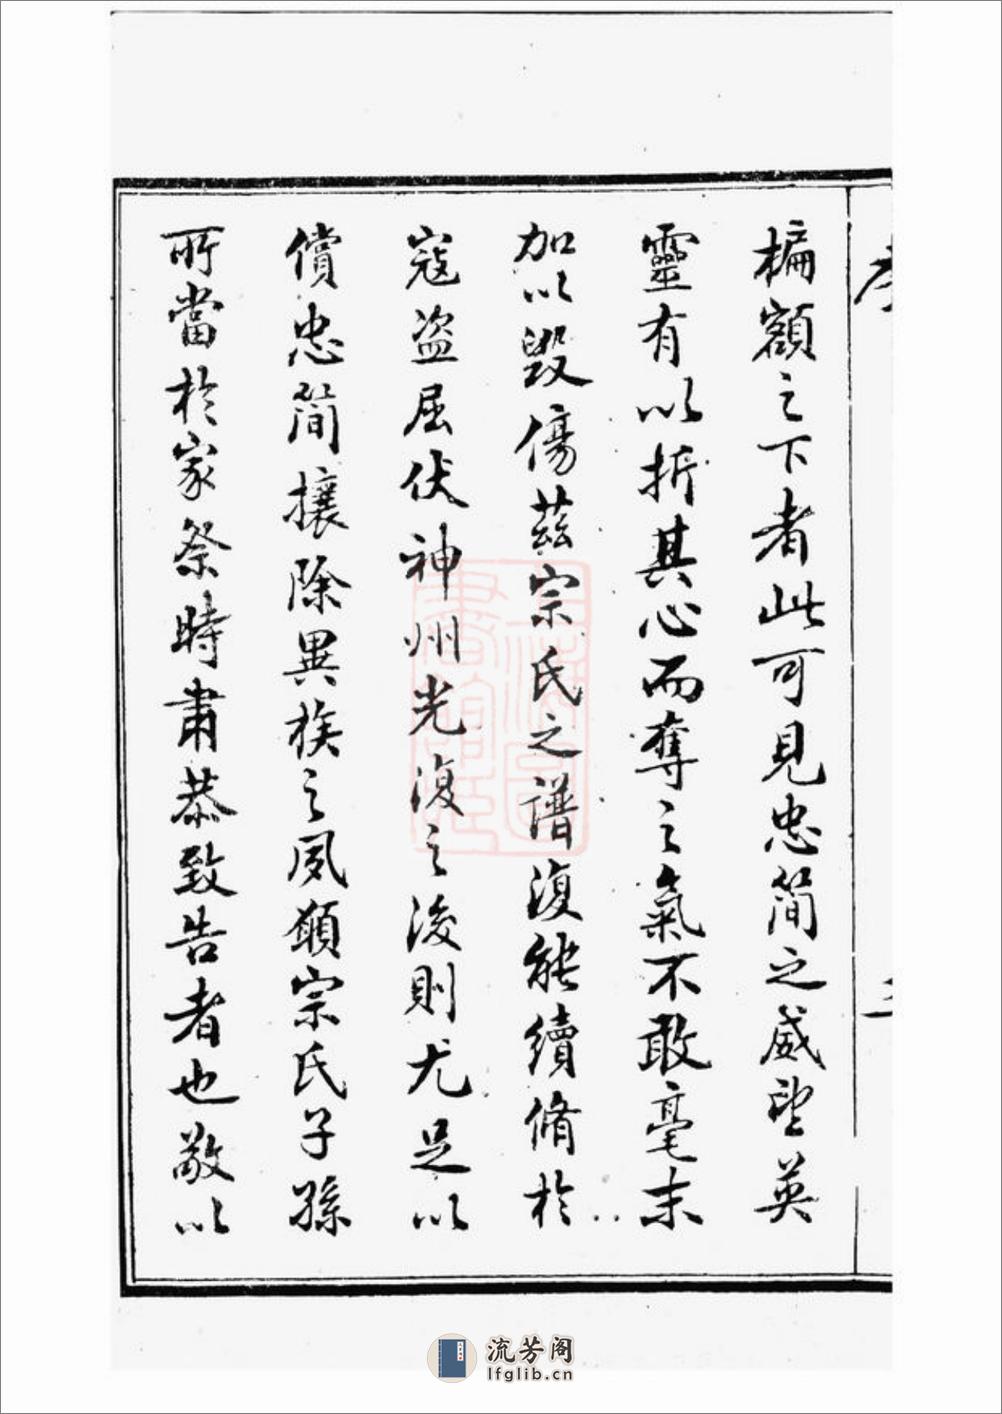 楄額之下者此可見忠簡之威望英
靈有以折其心而奪之氣不敢毫末
加以毀傷茲宗氏之譜復能續脩於
寇盜屈伏神州光復之後則尤足以
償忠簡攘除異族之夙願宗氏子孫
所當於家祭時肅恭致告者也敬以
流芳阁
lfglib.cn